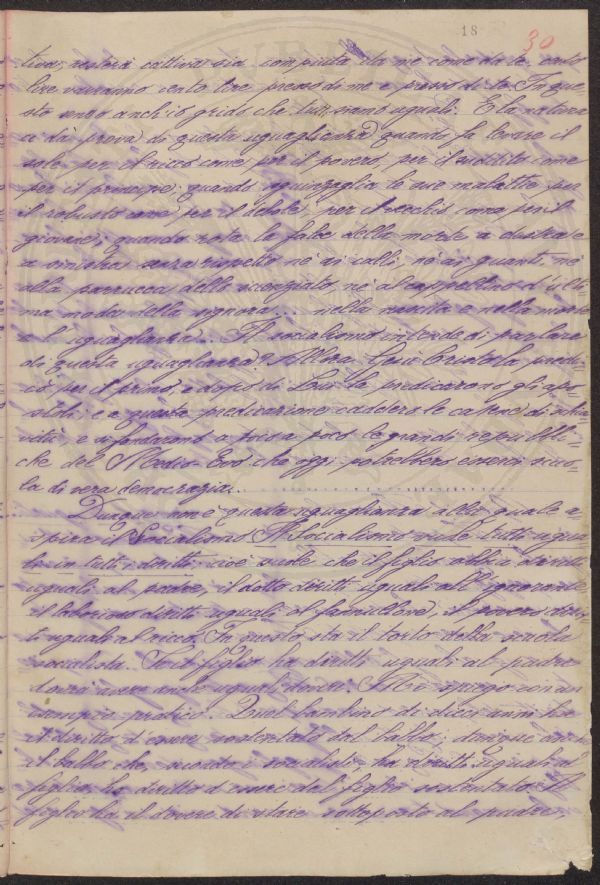 18
30
tiva, resterà cattiva sia compiuta da me come da te, cento
lire varranno cento lire presso di me e presso di te. In que
sto senso anch'io grido che tutti siamo uguali. E la natura
ci dà prova di questa uguaglianza quando fa levare il
sole per il ricco come per il povero, per il suddito come
per il principe; quando sguinzaglia le sue malattie per
il robusto come per il debole, per il vecchio come per il
giovane; quando rota la falce della morte a destra e
a sinistra senza rispetto nè ai calli, nè ai guanti, nè
alla parrucca dello scienziato, nè al cappellino d'ulti
ma moda della signora... nella nascita e nella morte
è l'uguaglianza... Il socialismo intende di parlare
di questa uguaglianza? Allora Gesù Cristo la predi
cò per il primo, e dopo di Lui la predicarono gli apo
stoli; e a questa predicazione caddero le catene di schia
vitù, e si fondarono a poco a poco le grandi repubbli
che del Medio Evo che oggi potrebbero esserci scuo
la di vera democrazia...
Dunque non è questa uguaglianza alla quale a
spira il Socialismo. Il Socialismo vuole tutti ugua
li in tutti i diritti; cioè vuole che il figlio abbia diritti
uguali al padre, il dotto diritti uguali all'ignorante
il laborioso diritti uguali al fannullone, il povero dirit
ti uguali al ricco. In questo sta il torto della scuola
socialista. Se il figlio ha diritti uguali al padre
dovrà avere anche uguali doveri. Mi spiego con un
esempio pratico. Quel bambino di dieci anni ha
il diritto d'essere sostentato dal babbo; dunque anche
il babbo che, secondo i socialisti, ha diritti uguali al
figlio, ha diritto d'essere dal figlio sostentato. Il
figlio ha il dovere di stare sottoposto al padre,